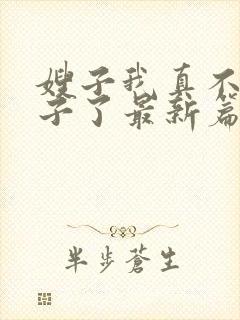 嫂子我真不
子了最新篇
半步蒼生